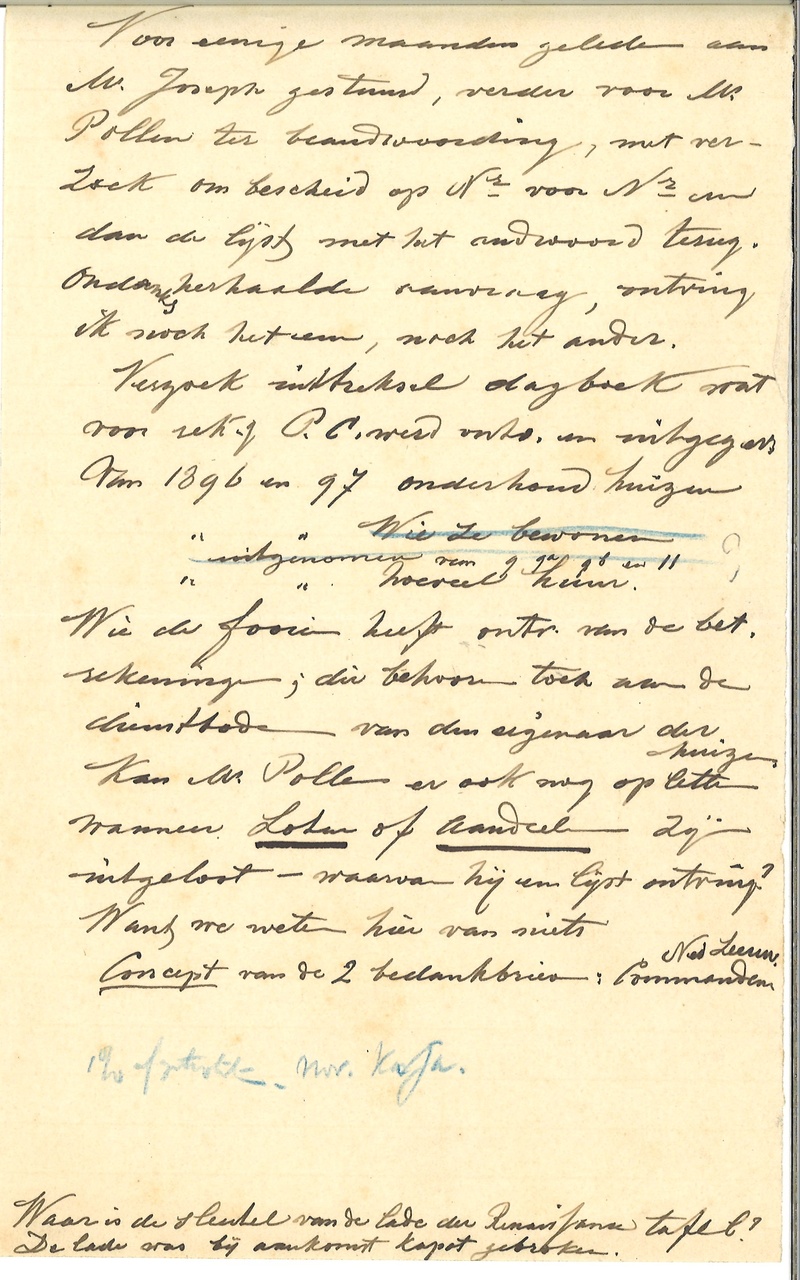 Voor eenige maanden geleden aan
Mr. Joseph gestuurd, verder voor Mr.
Pollen ter beandwoording, met ver-
zoek om bescheid op Nr voor Nr en
dan de lijst met het andwoord terug.
Ondanks herhaalde aanvraag, ontving
ik noch het een, noch het ander.
Verzoek uittreksel dagboek wat
voor rek. P. C. werd ontv. en uitgegeven
Van 1896 en 97 onderhoud huizen
" " Wie ze bewonen
uitgenomen van 9 9a 9b en 11 ?
" " hoeveel huur.
Wie de fooien heeft ontv. van de bet.
rekeningen; die behooren toch aan de
dienstboden van den eigenaar der
huizen
Kan Mr. Pollen er ook nog op letten
wanneer Loten of Aandeelen zijn
uitgeloot – waarvan hij een lijst ontving?
Want we weten hier van niets
Ned Leeuw.
Concept van de 2 bedankbrieven: Commandeur
nov.
Waar is de sleutel van de lade der Renaissance tafel?
De lade was bij aankomst kapot gebroken.